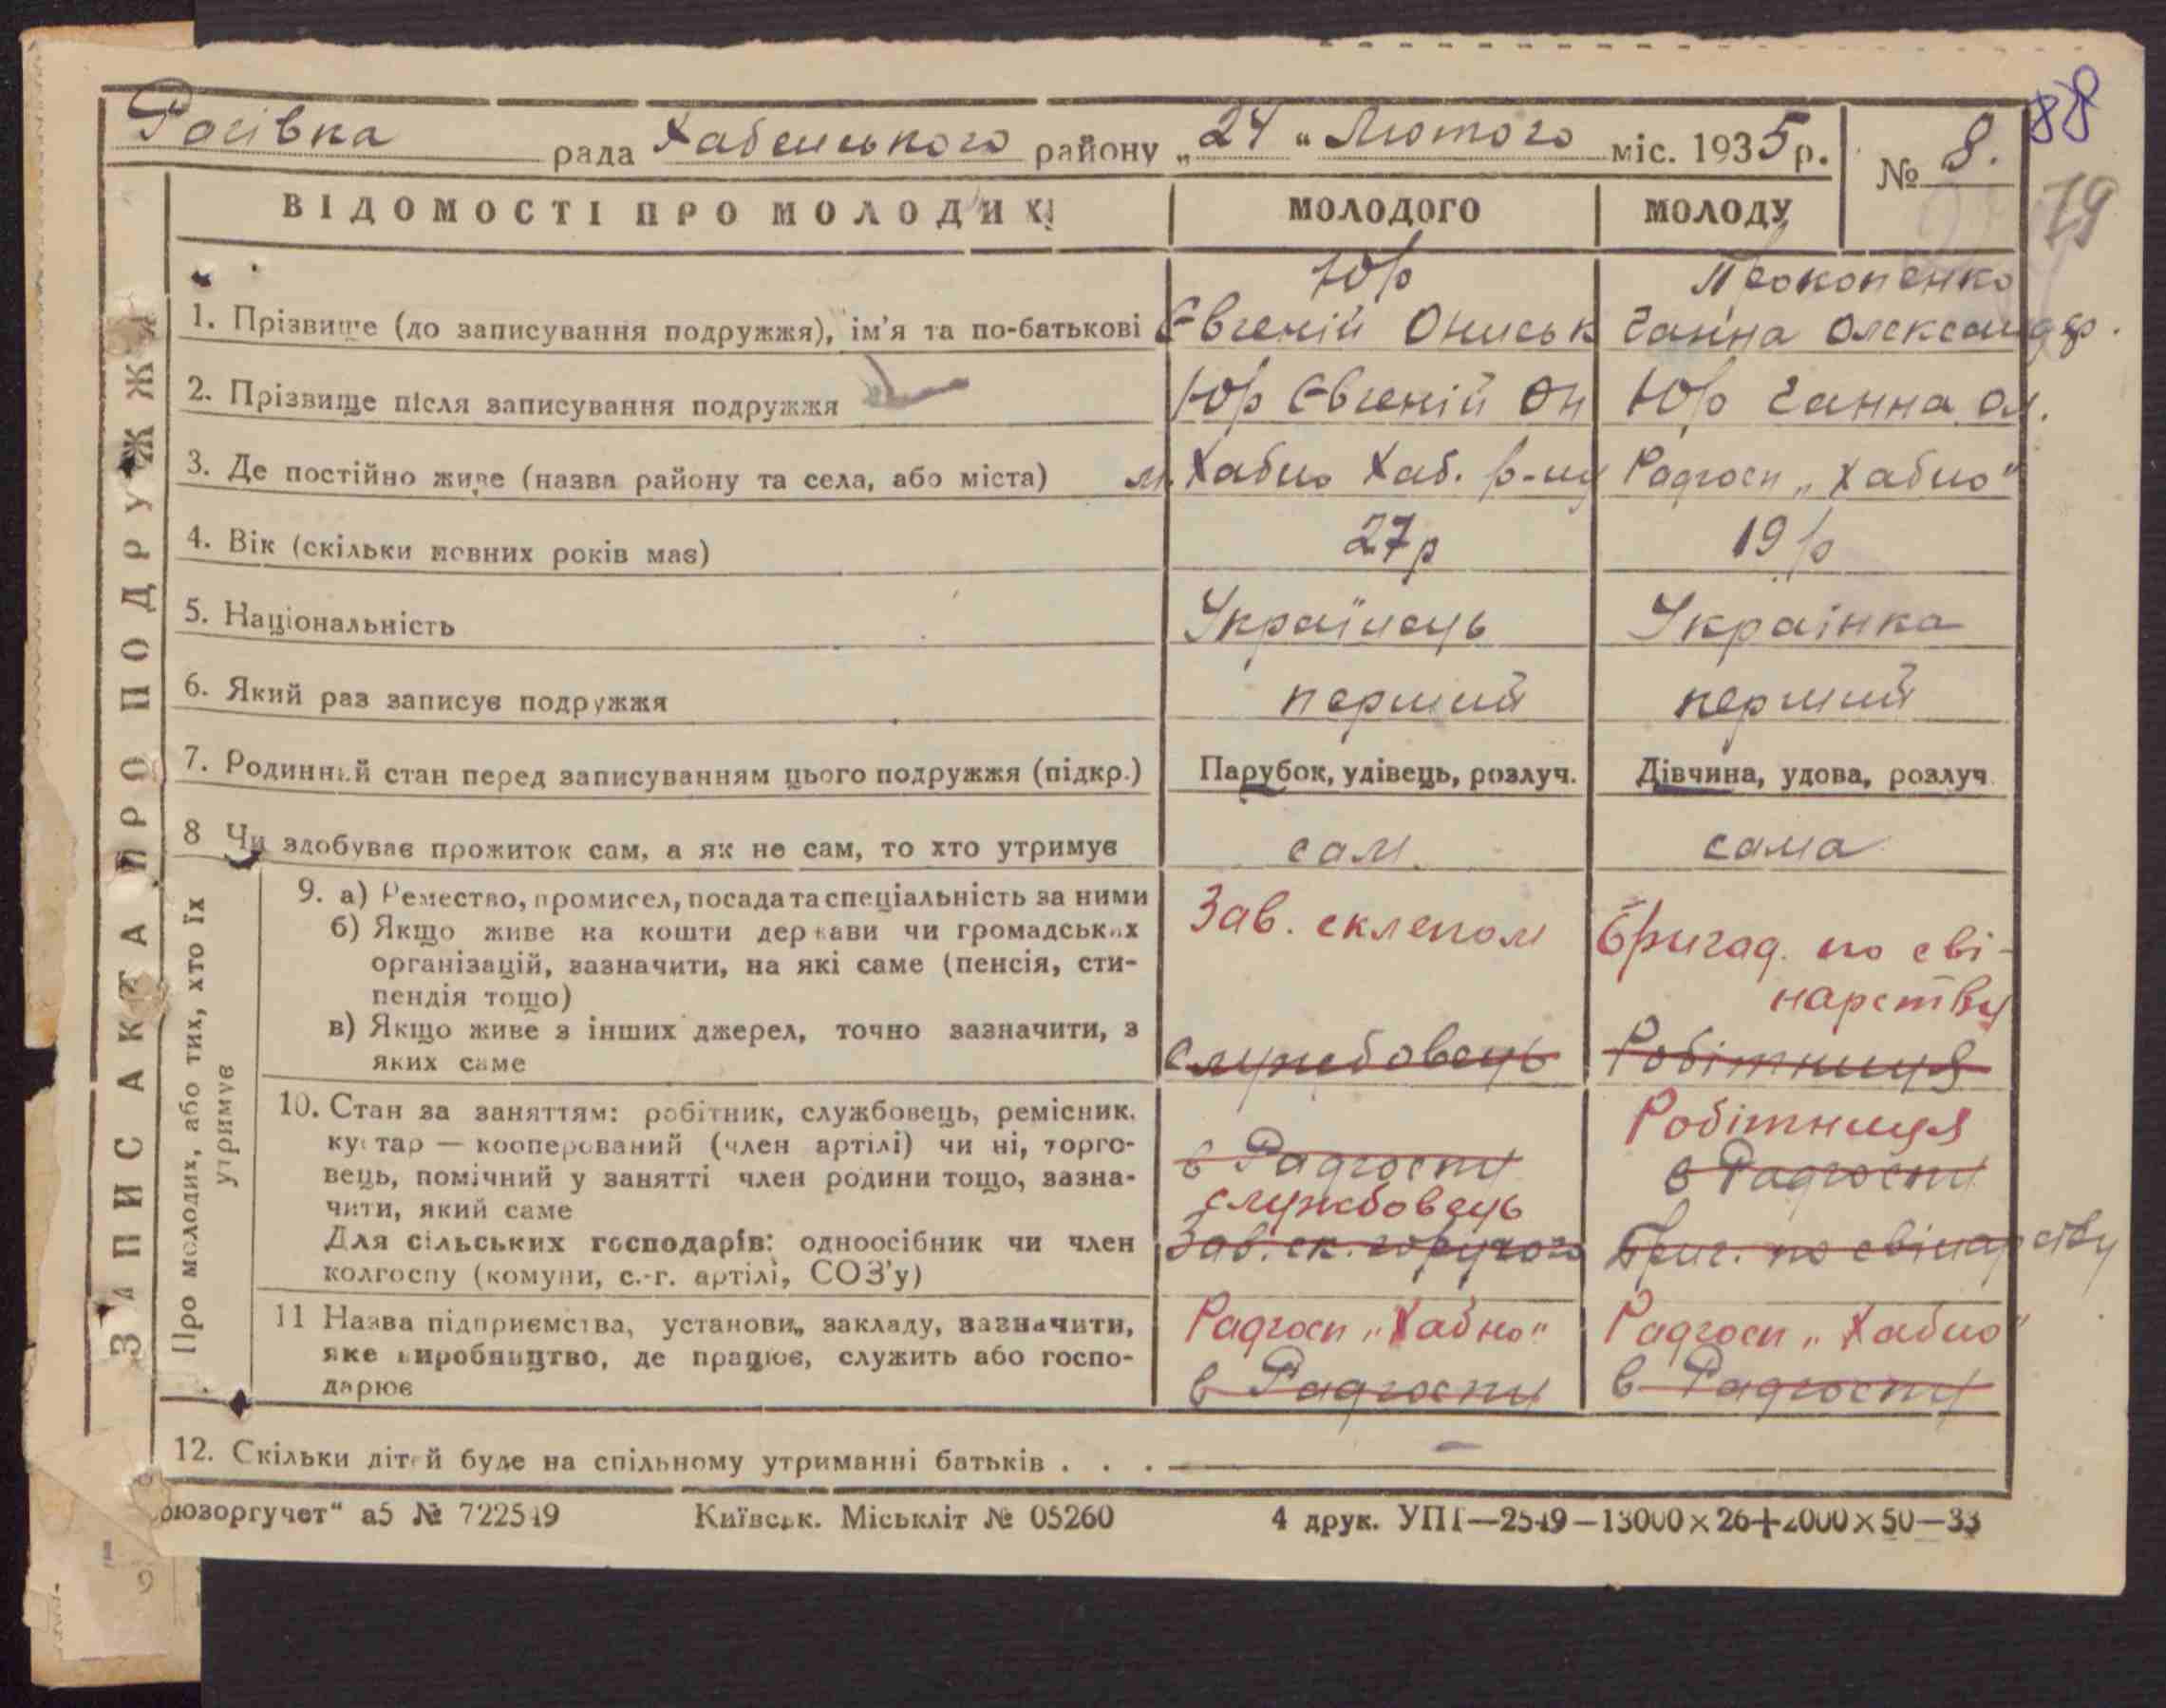 88
Рагівка рада Хабенського району „24 “ Лютого міс. 1935 р. № 8.
79
ВІДОМОСТІ ПРО МОЛОДИХ МОЛОДОГО МОЛОДУ
Юр Прокопенко
1. Прізвище (до записування подружжя), ім'я та по-батькові Євгеній Ониськ Ганна Олександр.
2. Прізвище після записування подружжя Юр Євгеній Он Юр Ганна Ол.
3. Де постійно живе (назва району та села, або міста) м. Хабно Хаб. р-ну Радгосп „Хабно"
4. Вік (скільки повних років має) 27 р 19 р
5. Національність Українець Украінка
6. Який раз записує подружжя перший перший
7. Родинний стан перед записуванням цього подружжя (підкр.) Парубок, удівець, розлуч. Дівчина, удова, розлуч
8 Чи здобуває прожиток сам, а як не сам, то хто утримує сам. сама
ЗАПИС АКТА ПРО ПОДРУЖЖЯ
Про молодих, або тих, хто їх
утримує
9. а) Ремество, промисел, посада та спеціальність за ними Зав. склепом Бригад. по сві-
б) Якщо живе на кошти держави чи громадських
організацій, зазначити, на які саме (пенсія, сти-
пендія тощо) нарству
в) Якщо живе з інших джерел, точно зазначити, з
яких саме Службовець Робітниця
10. Стан за заняттям: робітник, службовець, ремісник, Робітниця
кустар — кооперований (член артілі) чи ні, торго- в Радгоспу в Радгоспу
вець, помічний у занятті член родини тощо, зазна-
чити, який саме службовець
Для сільських господарів: одноосібник чи член Зав. ск. горючого Бриг. по свінарству
колгоспу (комуни, с.-г. артілі, СОЗ'у)
11 Назва підприємства, установи, закладу, зазначити, Радгосп „Хабно" Радгосп „Хабно"
яке виробництво, де працює, служить або госпо-
дарює в Радгоспу в Радгоспу
12. Скільки дітей буде на спільному утриманні батьків . . . —
оюзоргучет“ а5 № 722549 Київськ. Міськліт № 05260 4 друк. УПП—2549—13000×26+2000×50—33
9